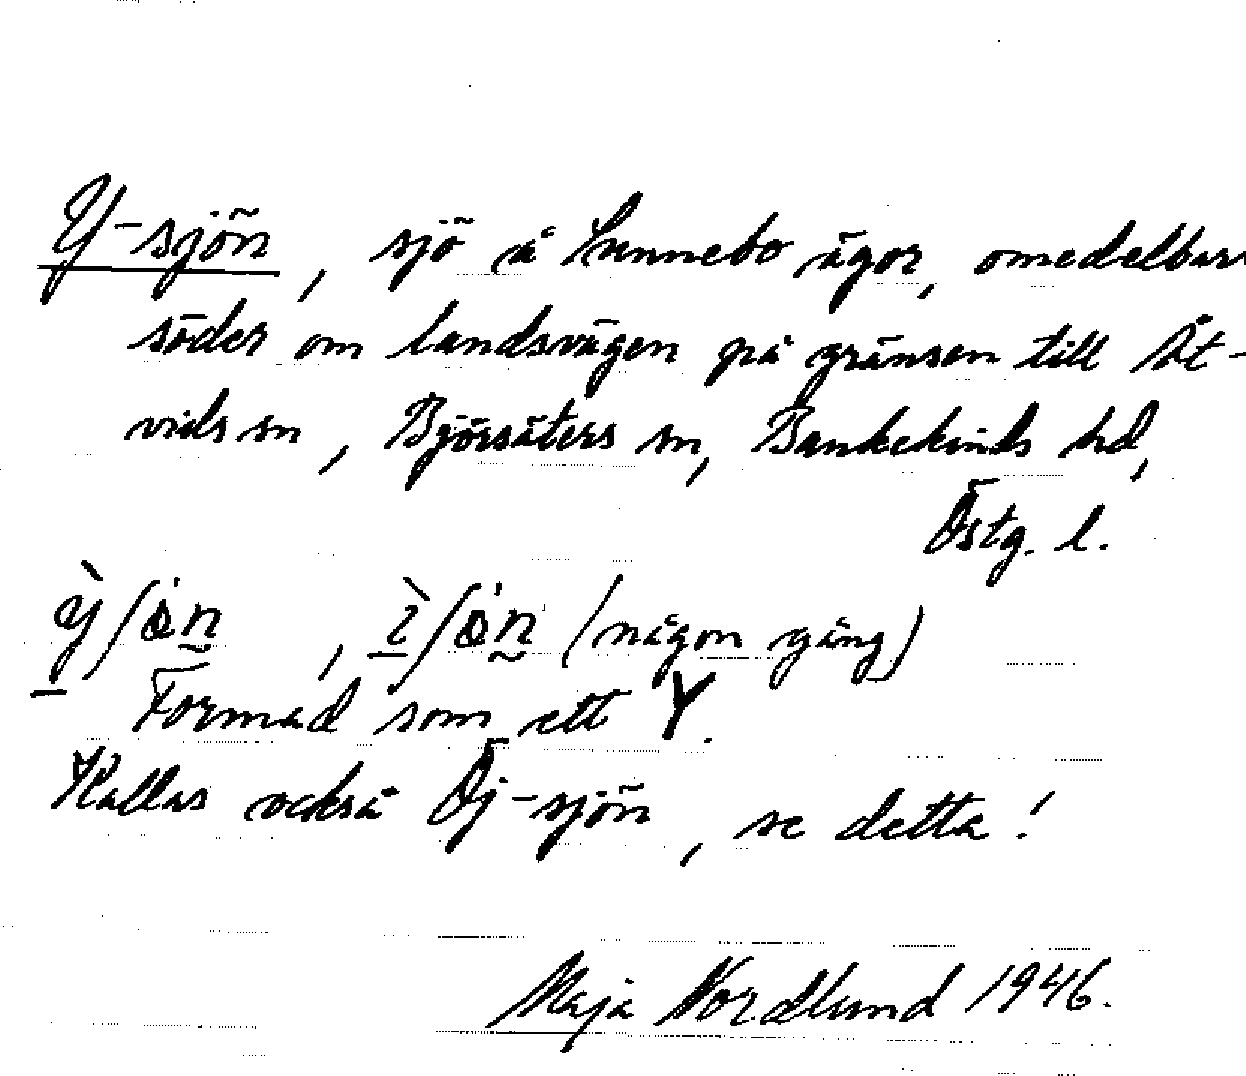 Y-sjön, sjö å Sunnebo ägor, omedelbart
söder om landsvägen på gränsen till Åt-
vids sn, Björsäters sn, Bankekinds hd,
Östg. l.
(någon gång)
Formad som ett Y.
Kallas också Öj-sjön, se detta!
Maja Nordlund 1946.